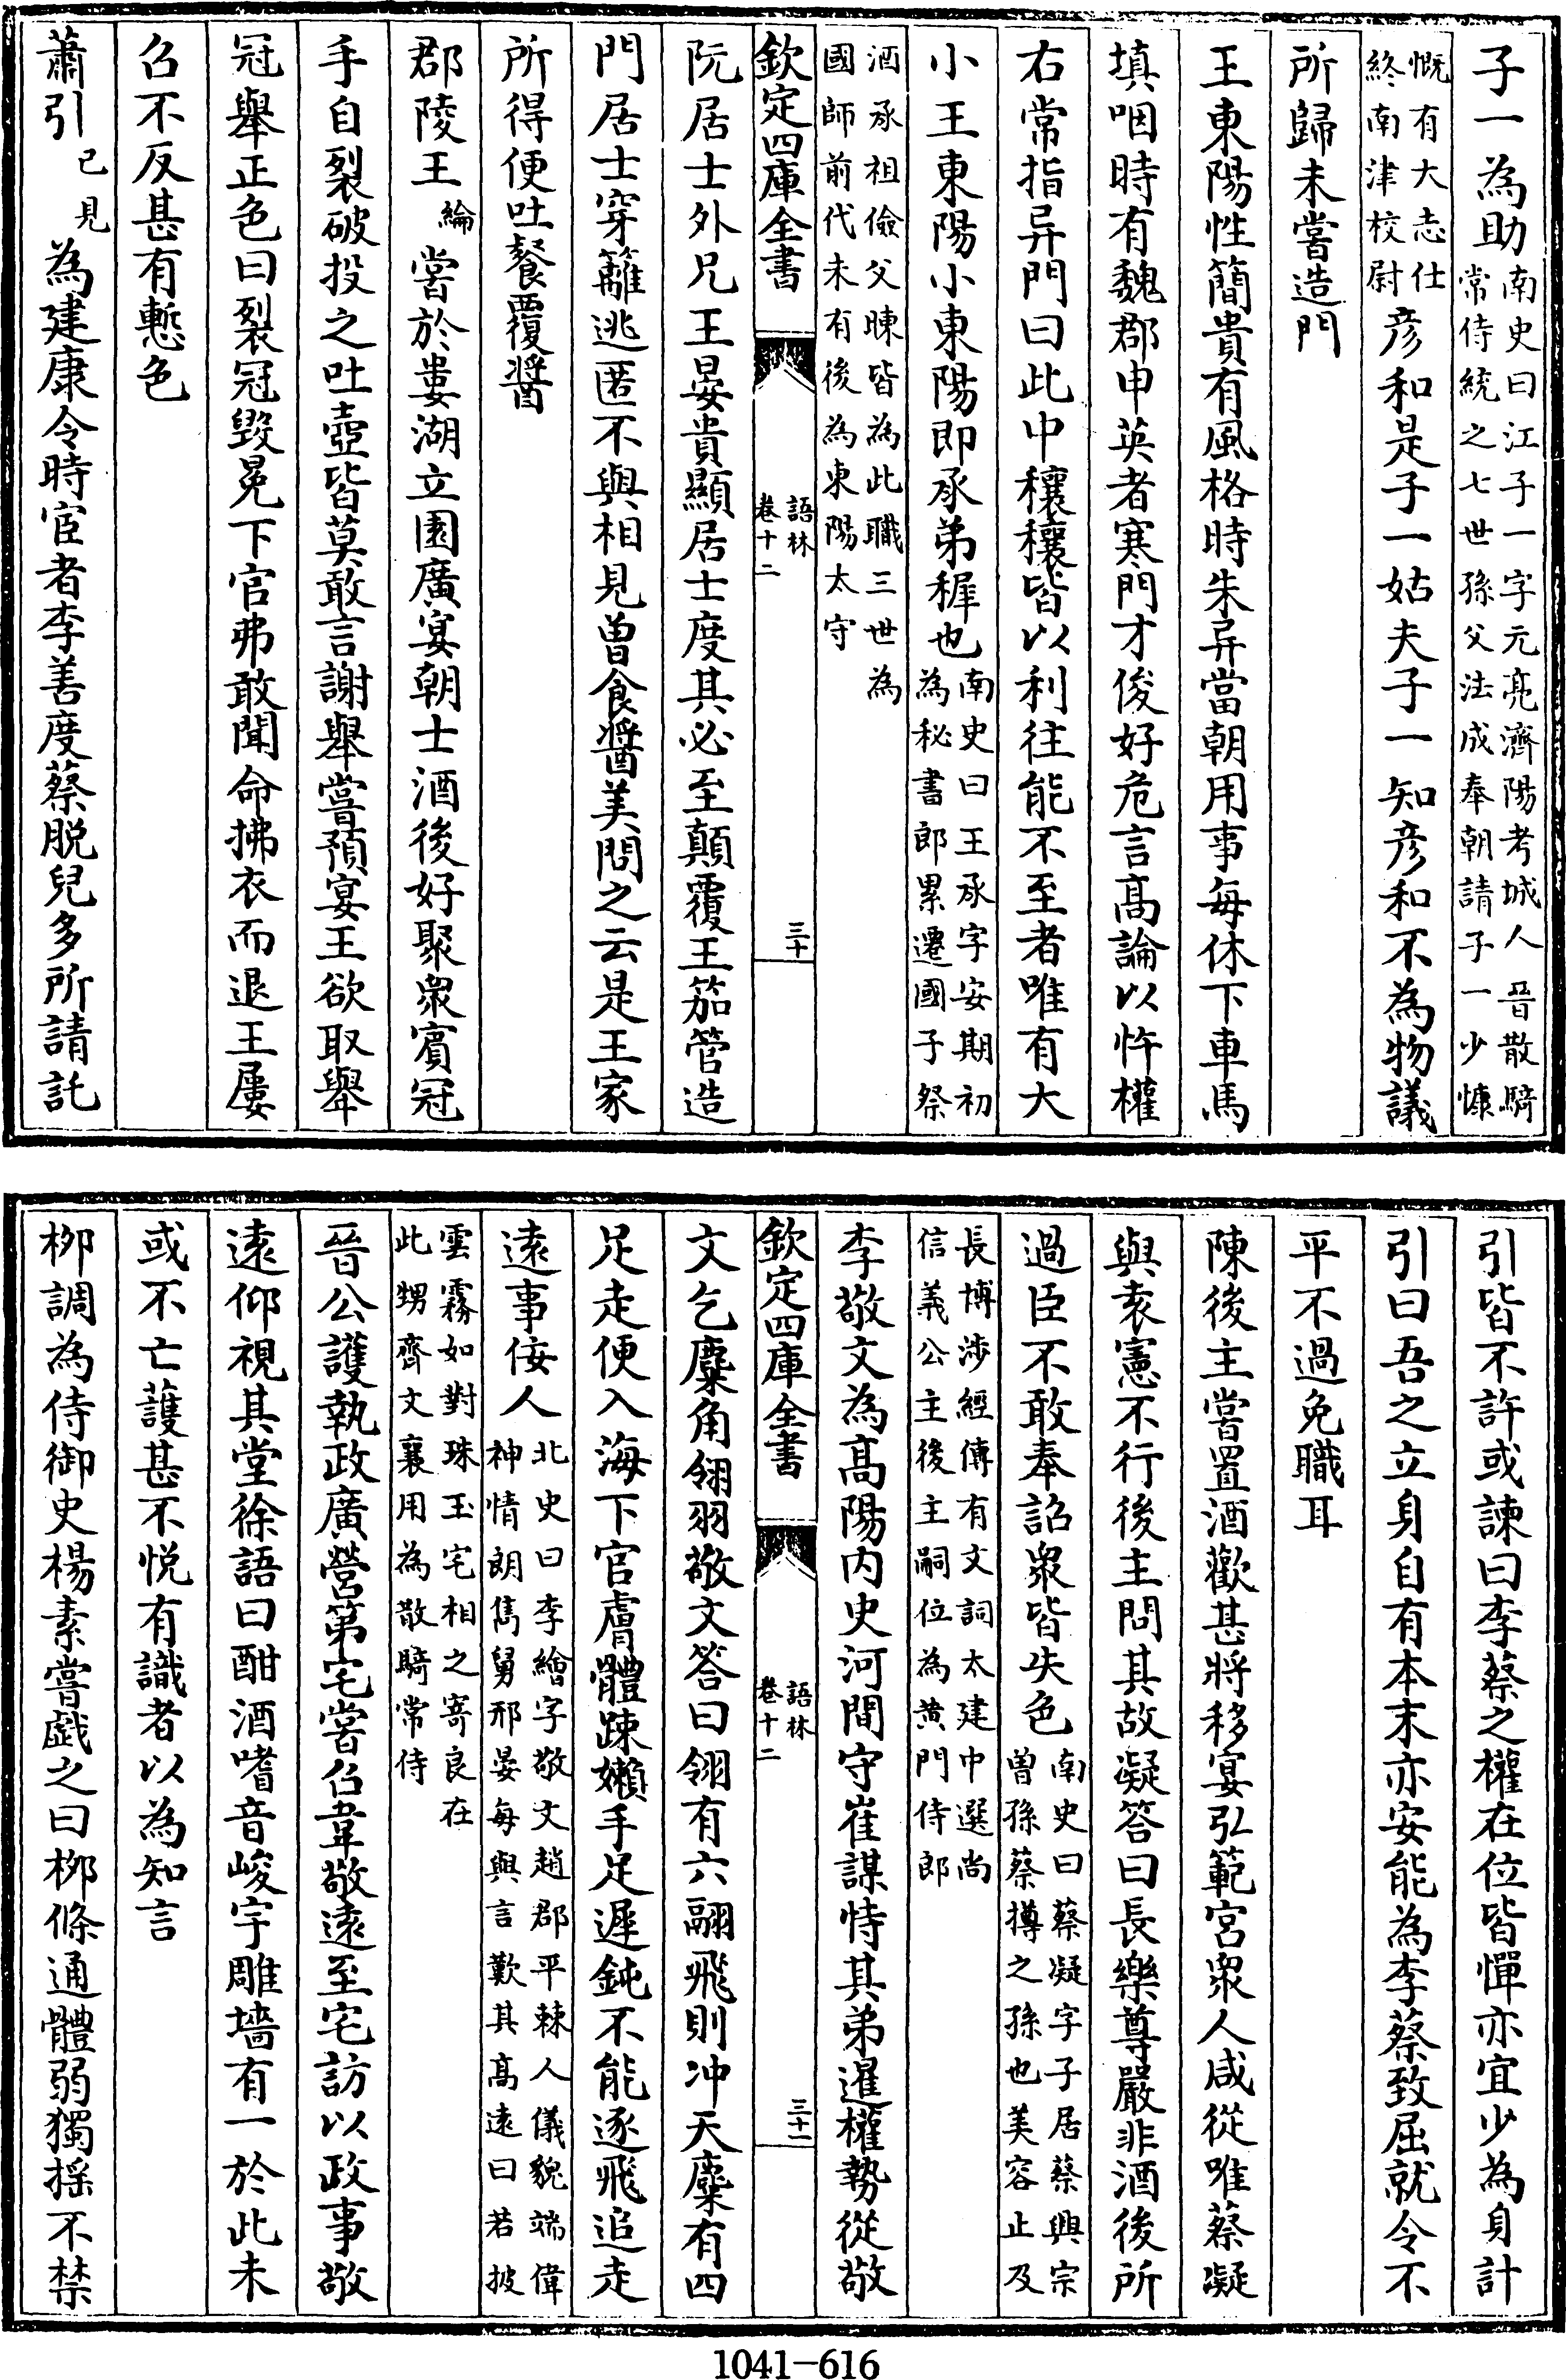 子一為助南史曰江子一字元亮濟陽考城人晉散騎常侍統之七世孫父法成奉朝請子一少慷
慨有大志仕終南津校尉彦和是子一姑夫子一知彦和不為物議
所歸未嘗造門
王東陽性簡貴有風格時朱异當朝用事每休下車馬
填咽時有魏郡申英者寒門才俊好危言高論以忤權
右常指异門曰此中穰穰皆以利往能不至者唯有大
小王東陽小東陽即承弟穉也南史曰王承字安期初為秘書郎累遷國子祭
酒承祖儉父暕皆為此職三世為國師前代未有後為東陽太守
欽定四庫全書 語林卷十二 三十
阮居士外兄王晏貴顯居士度其必至顛覆王笳管造
門居士穿籬逃匿不與相見曾食醬美問之云是王家
所得便吐餐覆醬
郡陵王綸嘗於婁湖立園廣宴朝士酒後好聚衆賓冠
手自裂破投之吐壺皆莫敢言謝舉嘗預宴王欲取舉
冠舉正色曰裂冠毀冕下官弗敢聞命拂衣而退王屢
召不反甚有慙色
蕭引已見為建康令時宦者李善度蔡脱兒多所請託
引皆不許或諫曰李蔡之權在位皆憚亦宜少為身計
引曰吾之立身自有本末亦安能為李蔡致屈就令不
平不過免職耳
陳後主嘗置酒歡甚將移宴弘範宮衆人咸從唯蔡凝
與袁憲不行後主問其故凝答曰長樂尊嚴非酒後所
過臣不敢奉詔衆皆失色南史曰蔡凝字子居蔡興宗曾孫蔡樽之孫也美容止及
長博涉經傳有文詞太建中選尚信義公主後主嗣位為黄門侍郎
李敬文為高陽内史河間守崔謀恃其弟暹權勢從敬
欽定四庫全書 語林卷十二 三十一
文乞麋角翎羽敬文答曰翎有六翮飛則冲天麋有四
足走便入海下官膚體踈嬾手足遲鈍不能逐飛追走
遠事佞人北史曰李繪字敬文趙郡平棘人儀貌端偉神情朗雋舅邢晏每與言歎其高遠曰若披
雲霧如對珠玉宅相之寄良在此甥齊文襄用為散騎常侍
晉公護執政廣營第宅嘗召韋敬遠至宅訪以政事敬
遠仰視其堂徐語曰酣酒嗜音峻宇雕墻有一於此未
或不亡護甚不悦有識者以為知言
桞調為侍御史楊素嘗戯之曰桞條通體弱獨揺不禁
1041-616